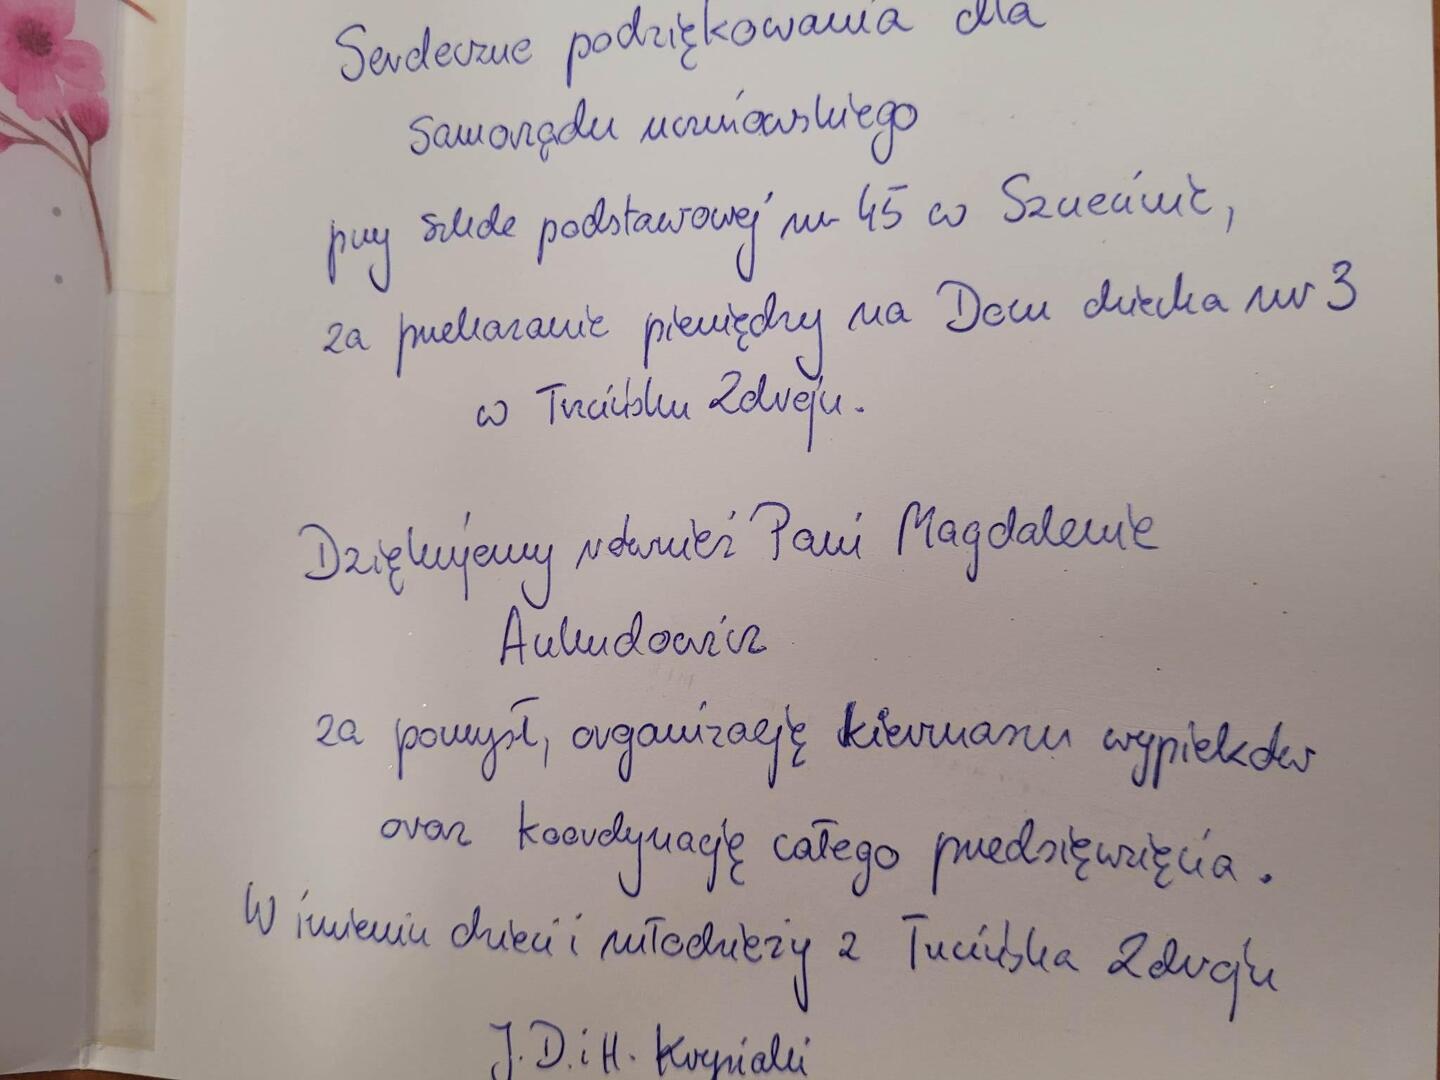 Serdeczne podziękowania dla
Samorządu uczniowskiego
przy szkole podstawowej nr 45 w Szczecinie,
za przekazanie pieniędzy na Dom dziecka nr 3
w Trzcińsku Zdroju.
Dziękujemy również Pani Magdalenie
Ankudowicz
za pomysł, organizację kiermaszu wypieków
oraz koordynację całego przedsięwzięcia.
W imieniu dzieci i młodzieży z Trzcińska Zdroju
J. D. i H.